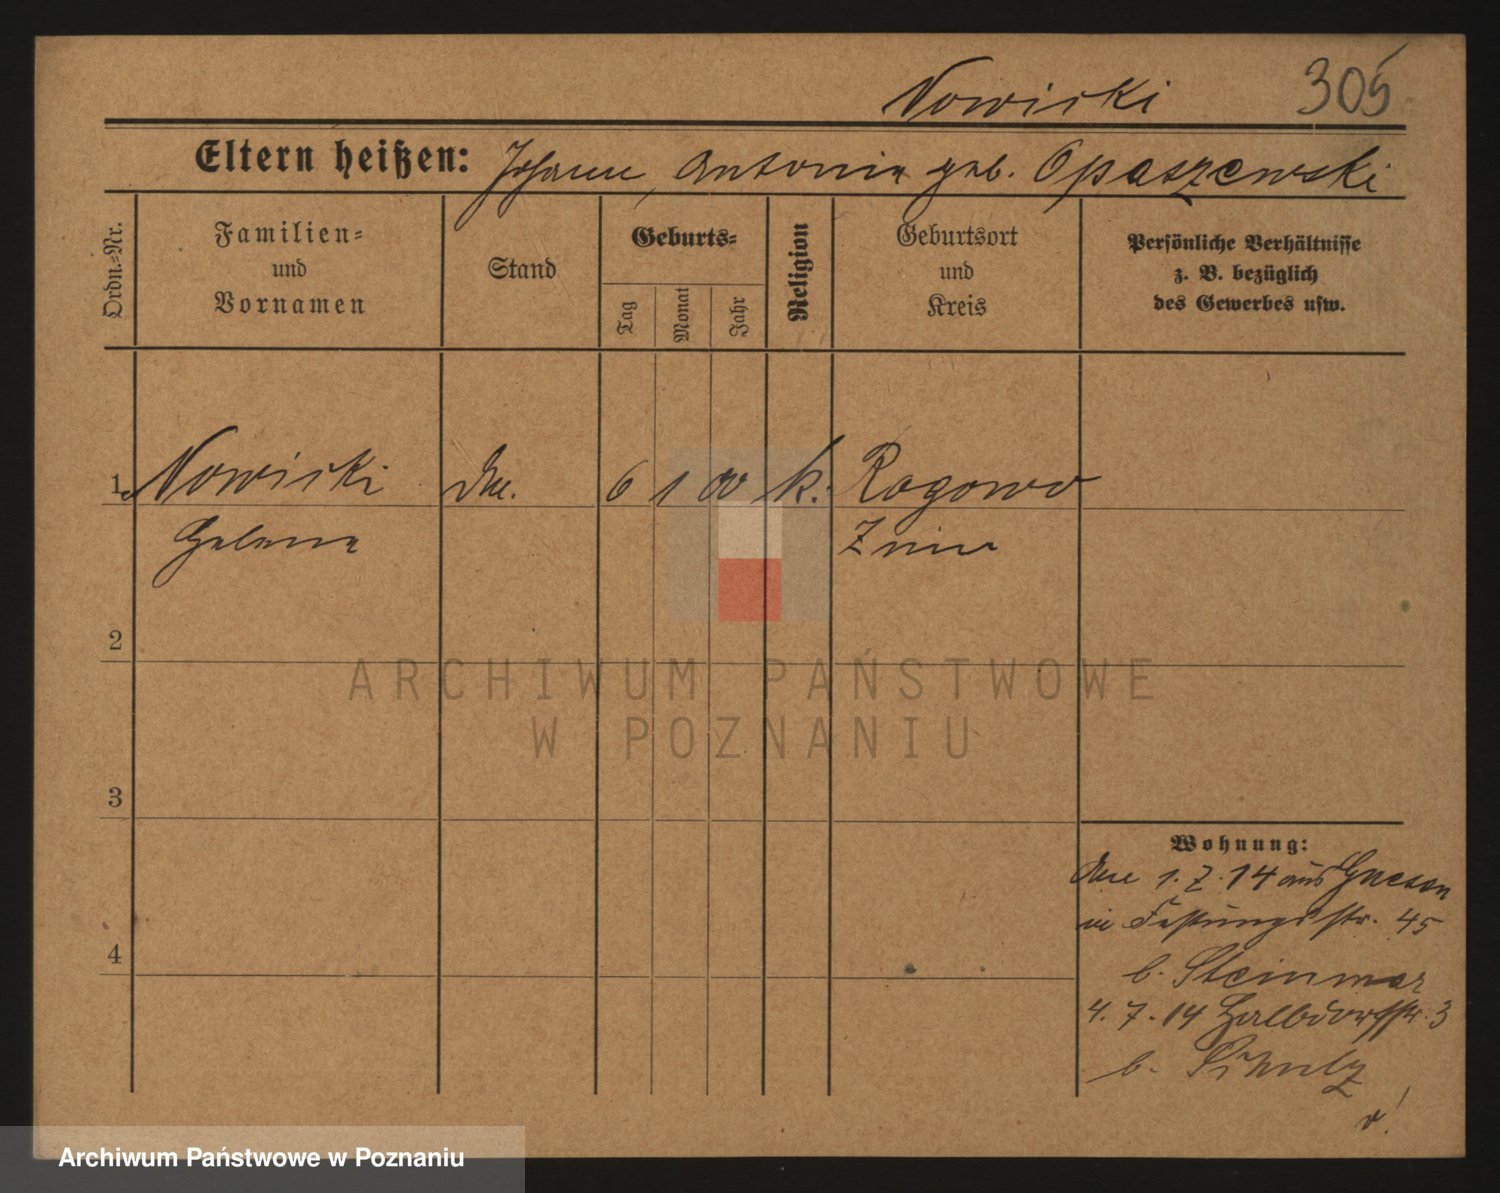 Nowicki 305
Eltern heißen: Johann, Antonie geb. Opaszewski
Ordn.-Nr.
Familien-
und
Vornamen
Stand
Geburts-
Tag
Monat
Jahr
Religion
Geburtsort
und
Kreis
Persönliche Verhältnisse
z. B. bezüglich
des Gewerbes usw.
1 Nowicki 6 1 00 k. Rogowo
Helene Znin
2
3
4
Wohnung:
1. 7. 14 aus Gnesen
in Festungsstr. 45
b. Steinmar
4. 7. 14 Halbdorfstr. 3
b. Schulz
ARCHIWUM PAŃSTWOWE
W POZNANIU
Archiwum Państwowe w Poznaniu